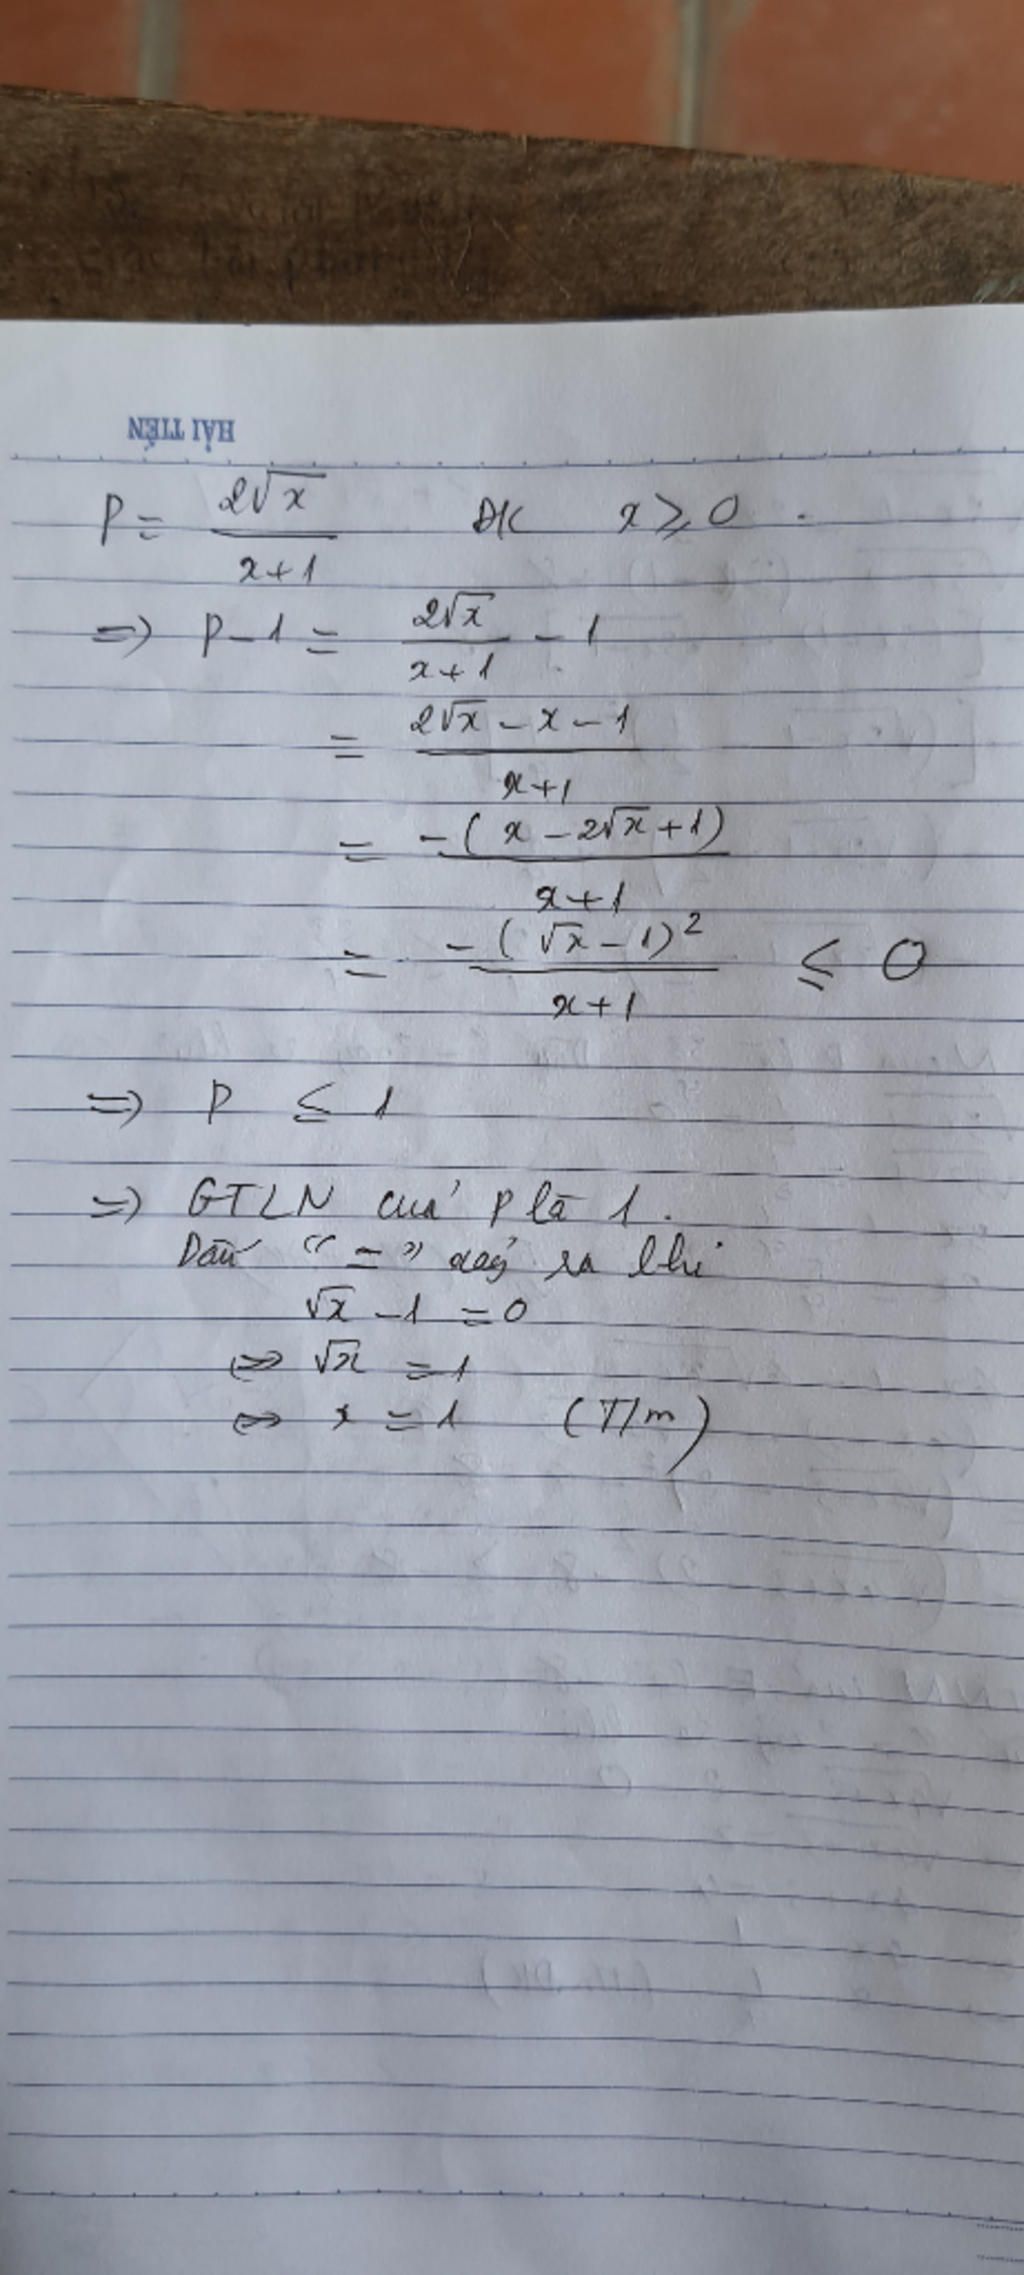 HẢI TIẾN
P = 2√x / x+1 ĐK x ≥ 0 .
=> P - 1 = 2√x / x+1 - 1
= 2√x - x - 1 / x+1
= -( x - 2√x + 1) / x+1
= -( √x - 1)² / x+1 ≤ 0
=> P ≤ 1
=> GTLN của P là 1 .
Dấu “ = ” xảy ra khi
√x - 1 = 0
<=> √x = 1
<=> x = 1 (T/m)